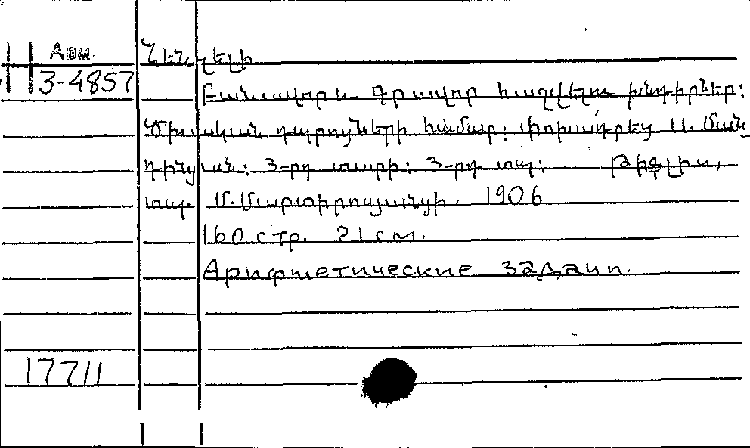 Арм.
3-4857
Նենցելի
Բանաւոր և Գրաւոր հաշուելու խնդիրներ:
Ծխական դպրոցների համար: Փոխադրեց Ս. Ման
դինյան: 3-րդ տարի: 3-րդ տպ: Թիֆլիս,
տպ. Մ. Մարտիրոսյանցի. 1906
160 стр. 21 см.
Арифметические задачи.
17711